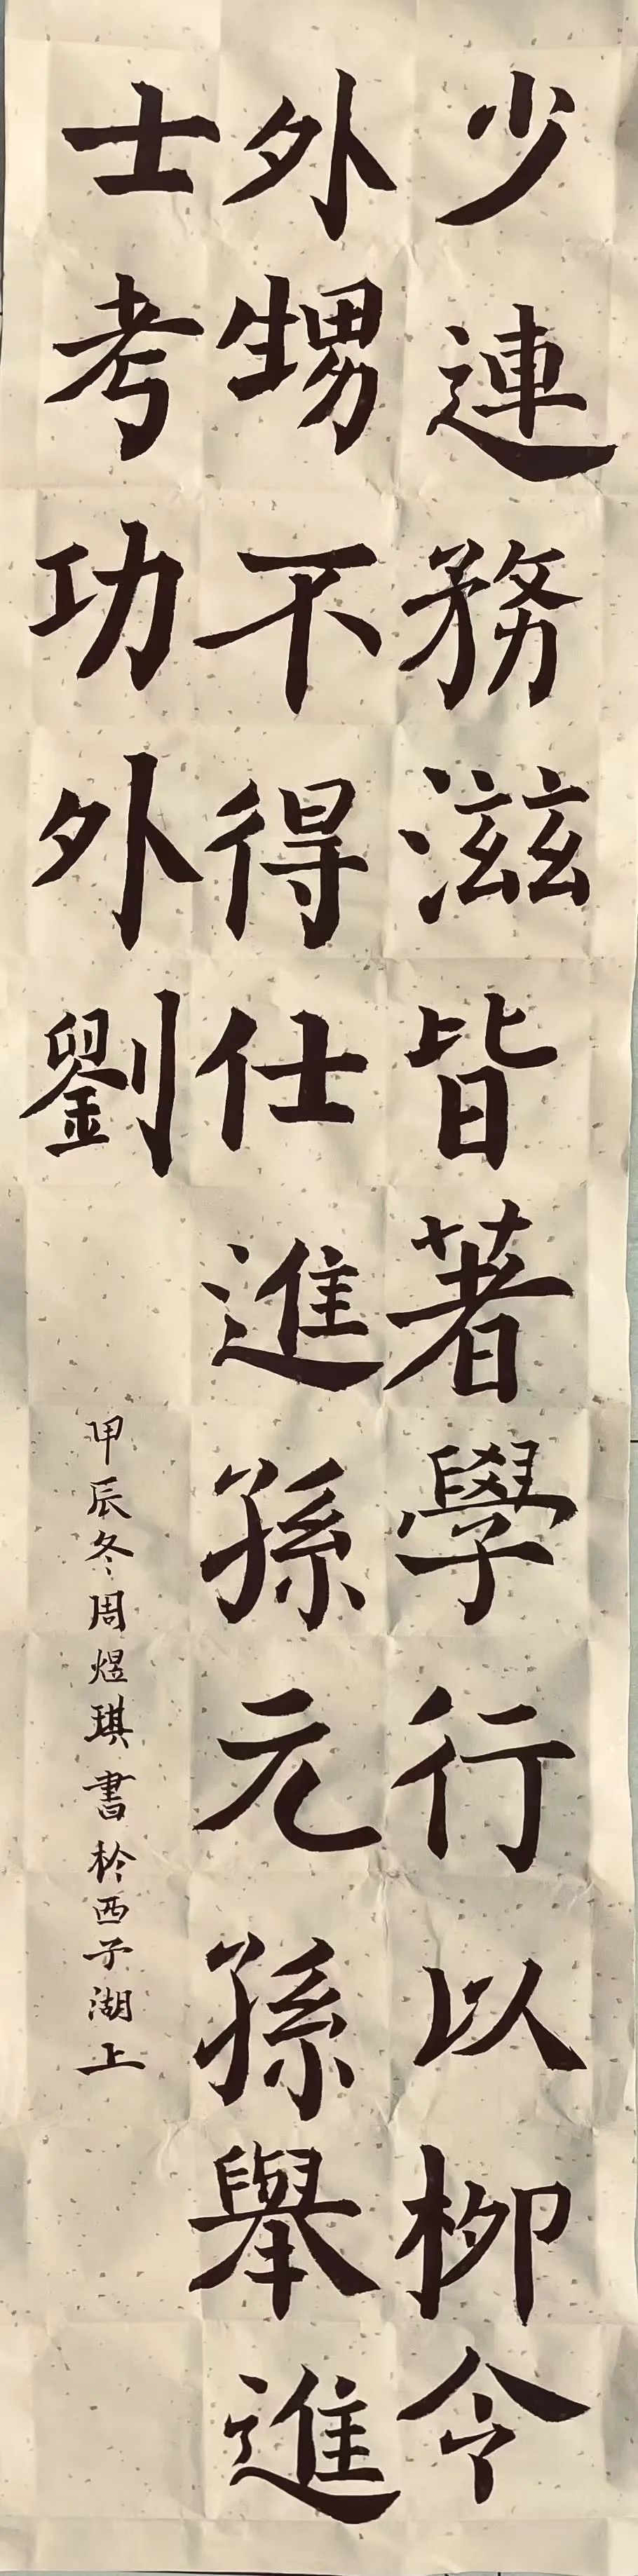 少連務滋皆著學行以柳令
外甥不得仕進孫元孫舉進
士考功外劉
甲辰冬周煜琪書於西子湖上